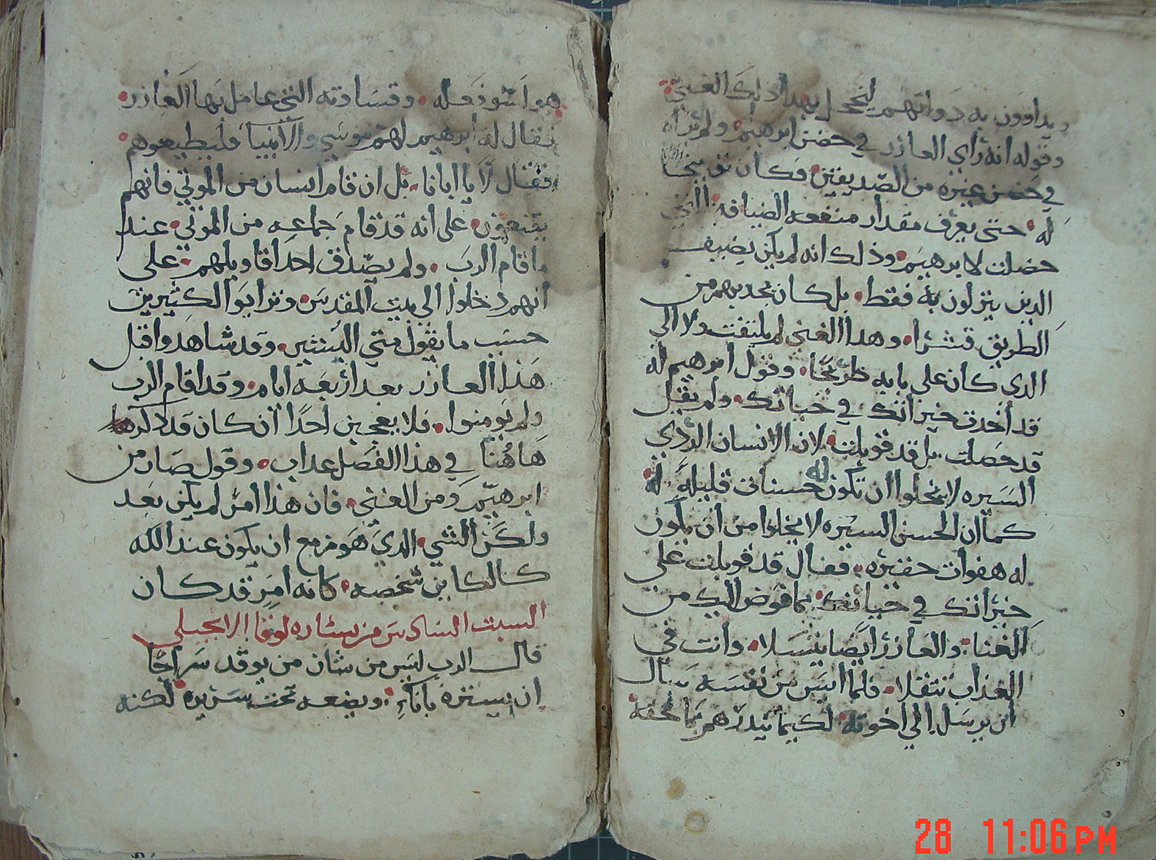 ويداوون به ذواتهم ليخجل بهذا ذلك الغني
وقوله انه راي العازر في حضن ابرهيم ولم يراه
في حضن غيره من الصديقين فكان توبيخا
له حتى يعرف مقدار منفعه الضيافه التي
حصلت لابرهيم وذلك انه لم يكن يضيف
الدين ينزلون به فقط بل كان يجديهم من
الطريق قنشرا وهدا الغني لم يلتفت ولا الي
الدي كان علي بابه طريحا وقول ابرهيم له
قد اخدت خيراتك في حياتك ولم يقل
قد حصلت بل قد قوبلت لان الانسان الردي
السيره لا يخلوا ان تكون له حسنات قليله
كما ان الحسن السيره لا يخلوا من ان يكون
له هفوات حقيره فقال قد قوبلت علي
خيراتك في حياتك بما فوض اليك من
الغنا والعازر ايضا يتسلا وانت في
العذاب تتقلا فلما أيس من نفسه سال
ان يرسل الي اخوته لكيما ينذرهم بما لحقه
هو وقساوته التي عامل بها العازر
فقال له ابرهيم لهم موسي والانبيا فليطيعوهم
فقال لا يا ابانا بل ان قام انسان من الموتي فانهم
يقتنعون علي انه قد قام جماعه من الموتي عند
ما قام الرب ولم يصدق احدا اقاويلهم علي
انهم دخلوا الي بيت المقدس وتراوا لكثيرين
حسب ما يقول متي البشير وقد شاهدوا قبل
هذا العازر بعد اربعه ايام وقد اقام الرب
ولم يومنوا فلا يعجبن احدا ان كان قد ذكر
هاهنا في هذا الفصل عذاب وقول صار من
ابرهيم ومن الغني فان هذا امر لم يكن بعد
ولكن الشي الدي هو مزمع ان يكون عند الله
كالكاين شخصه كانه امر قد كان
السبت السادس من بشاره لوقا الانجيلي
قال الرب ليس من شان من يوقد سراجا
ان يستره باناء ويضعه تحت سريره لكنه